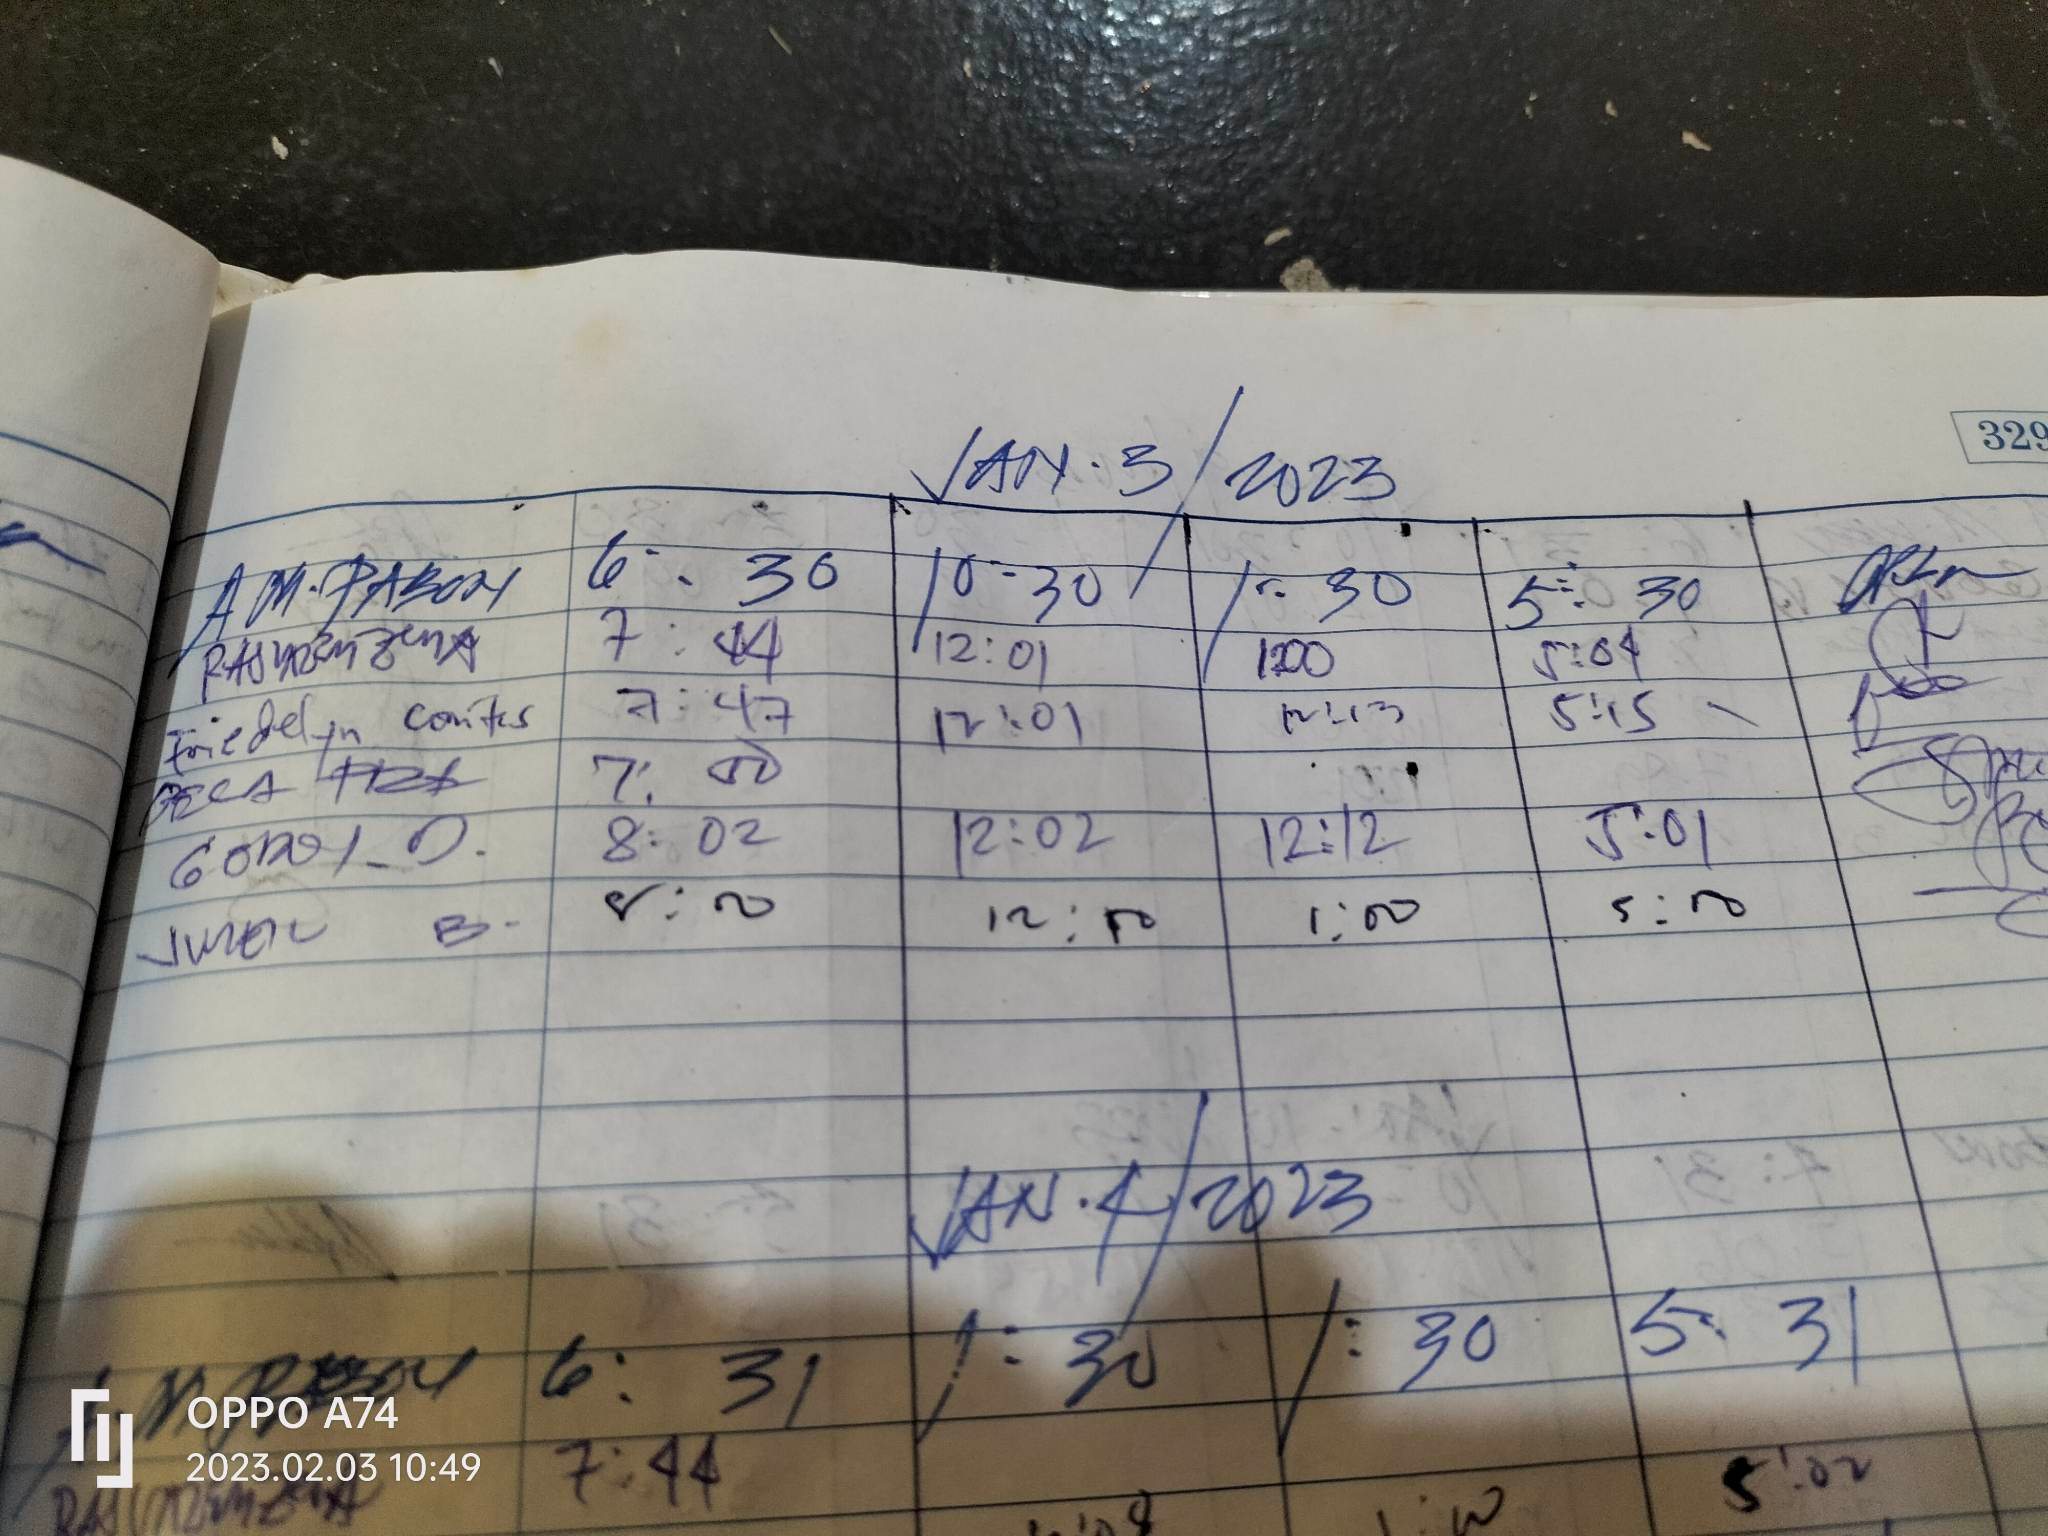 329
JAN. 3/2023
A M. PABON 6:30 10:30 1:30 5:30
7:44 12:01 1:00 5:04
Friedelyn 7:47 12:01 12:13 5:15
7:50
GODOY D. 8:02 12:02 12:12 5:01
B. 8:00 12:00 1:00 5:00
JAN. 4/2023
A M PABON 6:31 1:30 1:30 5:31
7:44 5:02
OPPO A74
2023.02.03 10:49